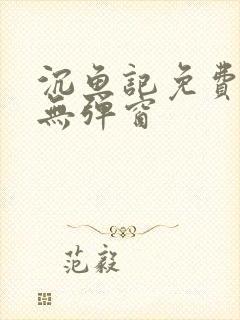 沉魚記免費
無彈窗
范毅